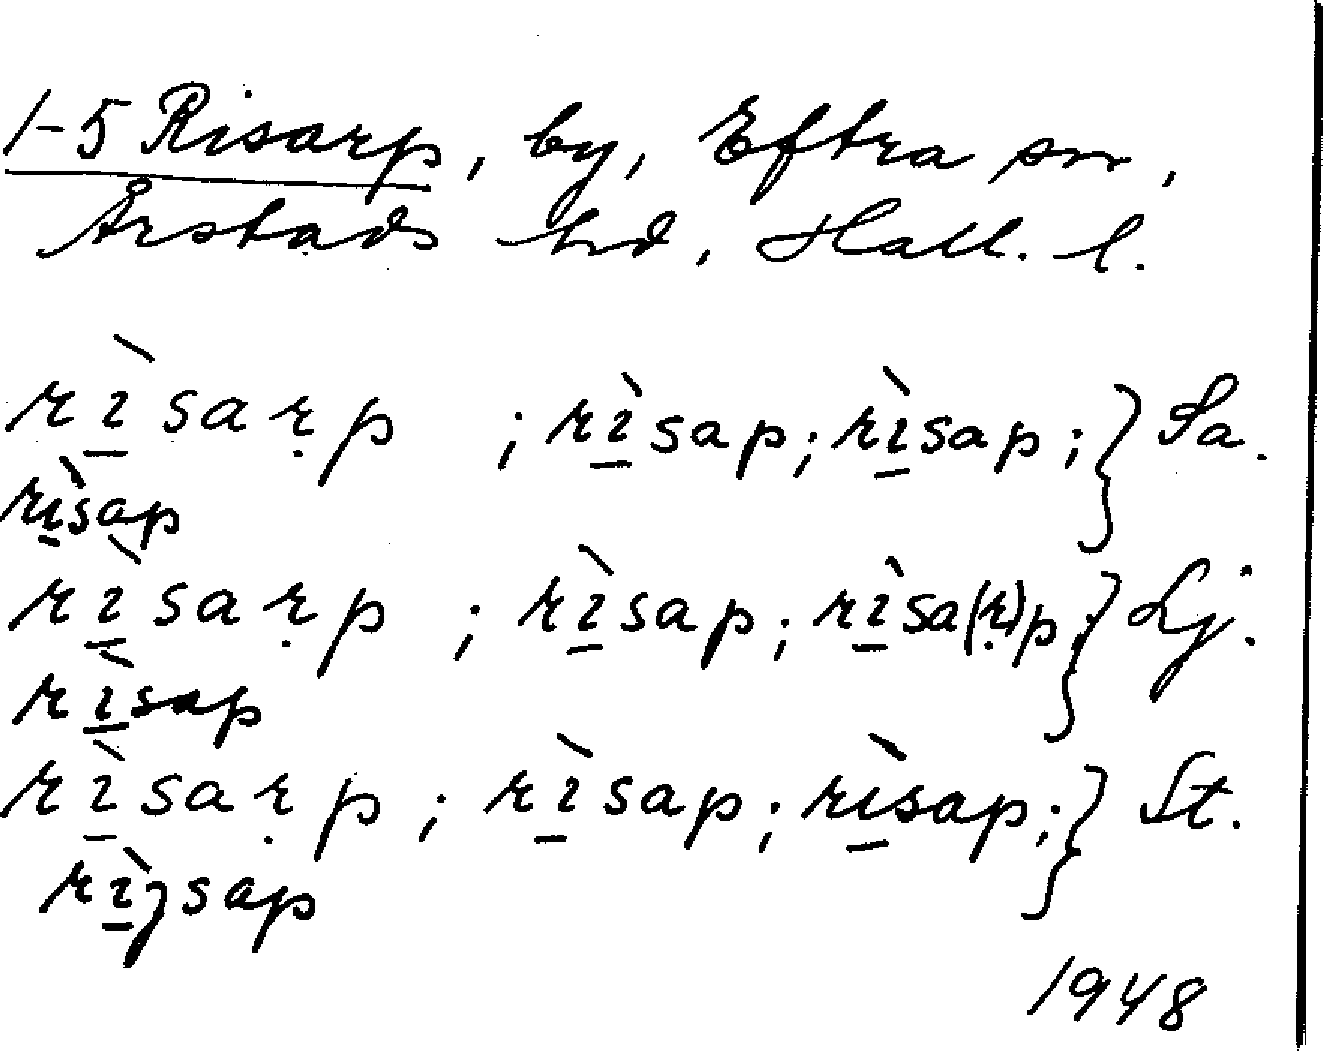 1-5 Risarp, by, Eftra sn,
Årstads hd, Hall. l.
rì̱saṛp ; rì̱sap; rì̱sap; } Sa.
rì̱sap
rì̱saṛp ; rì̱sap; rì̱sa(ṛ)p; } Lj.
rì̱sap
rì̱saṛp ; rì̱sap; rì̱sap; } St.
rì̱ȷsap
1948